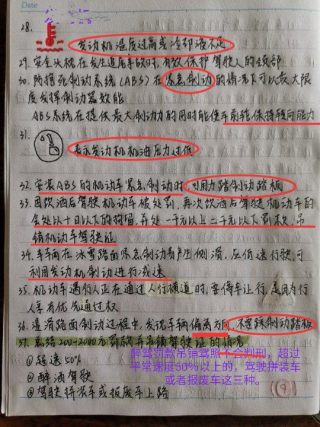 Date
28.
发动机温度过高或冷却液不足
29. 安全头枕在发生追尾事故时,有效保护驾驶人的颈部
30. 防抱死制动系统(ABS)在紧急制动的情况下可以最大限
度发挥制动器效能
ABS系统在提供最大制动力的同时能使车前轮保持转向能力
31.
表示发动机机油压力过低
32. 安装ABS的机动车紧急制动时,可用力踏制动踏板
33. 因饮酒后驾驶机动车被处罚,再次饮酒后驾驶机动车的
会处以十日以下的拘留,并处一千元以上二千元以下罚款,吊
销机动车驾驶证
34. 车辆在冰雪路面紧急制动易产生侧滑,应低速行驶,可
利用发动机制动进行减速
35. 机动车遇行人正在通过人行横道时,要停车让行,是因为行
人享有优先通过权
36. 湿滑路面制动过程中,发现车辆偏离方向,不要踩制动踏板
37. 总结200-2000元罚款并吊销驾驶证的情况
醉驾罚款吊销驾照不会判刑,超过
平常速度50%以上的,驾驶拼装车
或者报废车这三种。
①超速50%
②醉酒驾驶
③驾驶拼装车或报废车上路